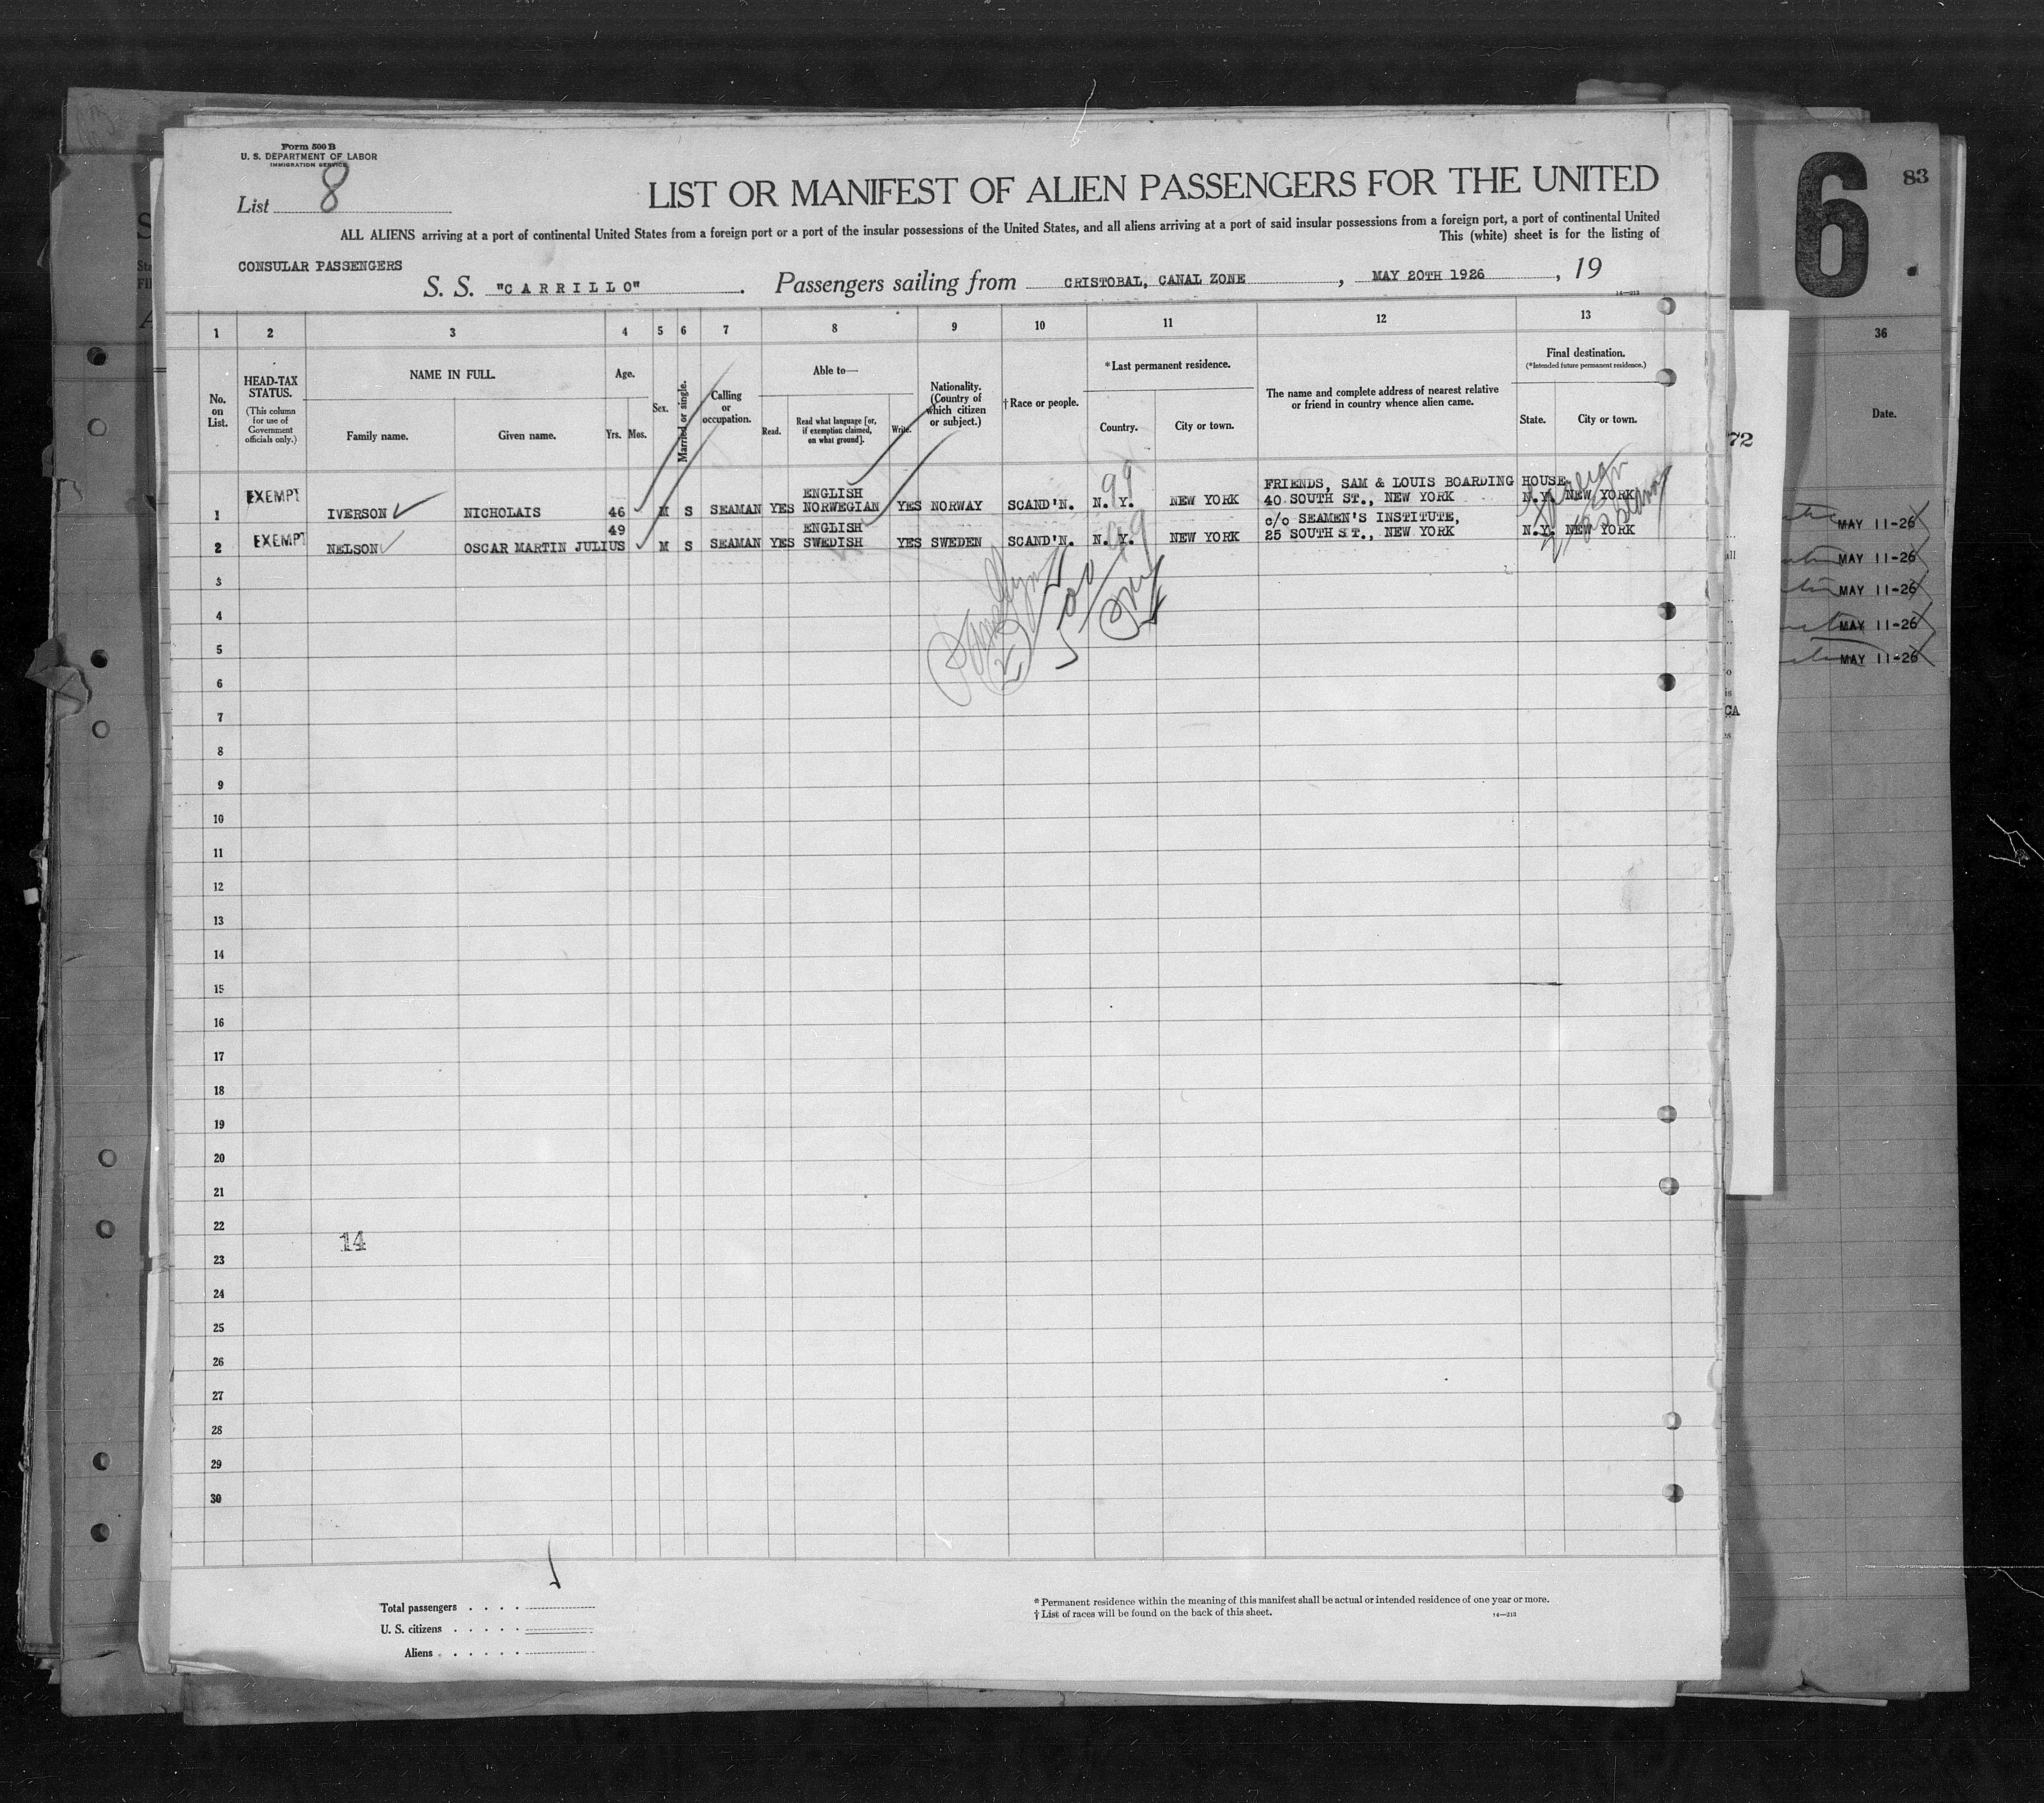 Form 500 B
U. S. DEPARTMENT OF LABOR
IMMIGRATION SERVICE
List 8
LIST OR MANIFEST OF ALIEN PASSENGERS FOR THE UNITED
ALL ALIENS arriving at a port of continental United States from a foreign port or a port of the insular possessions of the United States, and all aliens arriving at a port of said insular possessions from a foreign port, a port of continental United
This (white) sheet is for the listing of
CONSULAR PASSENGERS
S. S. "CARRILLO". Passengers sailing from CRISTOBAL, CANAL ZONE, MAY 20TH 1926, 19
14—213
1 2 3 4 5 6 7 8 9 10 11 12 13
No. on List.
HEAD-TAX STATUS.
(This column for use of Government officials only.)
NAME IN FULL.
Family name.
Given name.
Age.
Yrs. Mos.
Sex.
Married or single.
Calling or occupation.
Able to—
Read.
Read what language [or, if exemption claimed, on what ground].
Write.
Nationality. (Country of which citizen or subject.)
† Race or people.
* Last permanent residence.
Country.
City or town.
The name and complete address of nearest relative or friend in country whence alien came.
Final destination.
(*Intended future permanent residence.)
State.
City or town.
99
ENGLISH FRIENDS, SAM & LOUIS BOARDING HOUSE,
1 EXEMPT IVERSON NICHOLAIS 46 M S SEAMAN YES NORWEGIAN YES NORWAY SCAND'N. N. Y. NEW YORK 40 SOUTH ST., NEW YORK N.Y. NEW YORK
49 ENGLISH c/o SEAMEN'S INSTITUTE,
2 EXEMPT NELSON OSCAR MARTIN JULIUS M S SEAMAN YES SWEDISH YES SWEDEN SCAND'N. N. Y. NEW YORK 25 SOUTH ST., NEW YORK N.Y. NEW YORK
99
3
4
5
6
7
8
9
10
11
12
13
14
15
16
17
18
19
20
21
22
14
23
24
25
26
27
28
29
30
Total passengers
U. S. citizens
Aliens
* Permanent residence within the meaning of this manifest shall be actual or intended residence of one year or more.
† List of races will be found on the back of this sheet.
14—213
6
83
36
Date.
72
MAY 11-26
MAY 11-26
MAY 11-26
MAY 11-26
MAY 11-26
CA